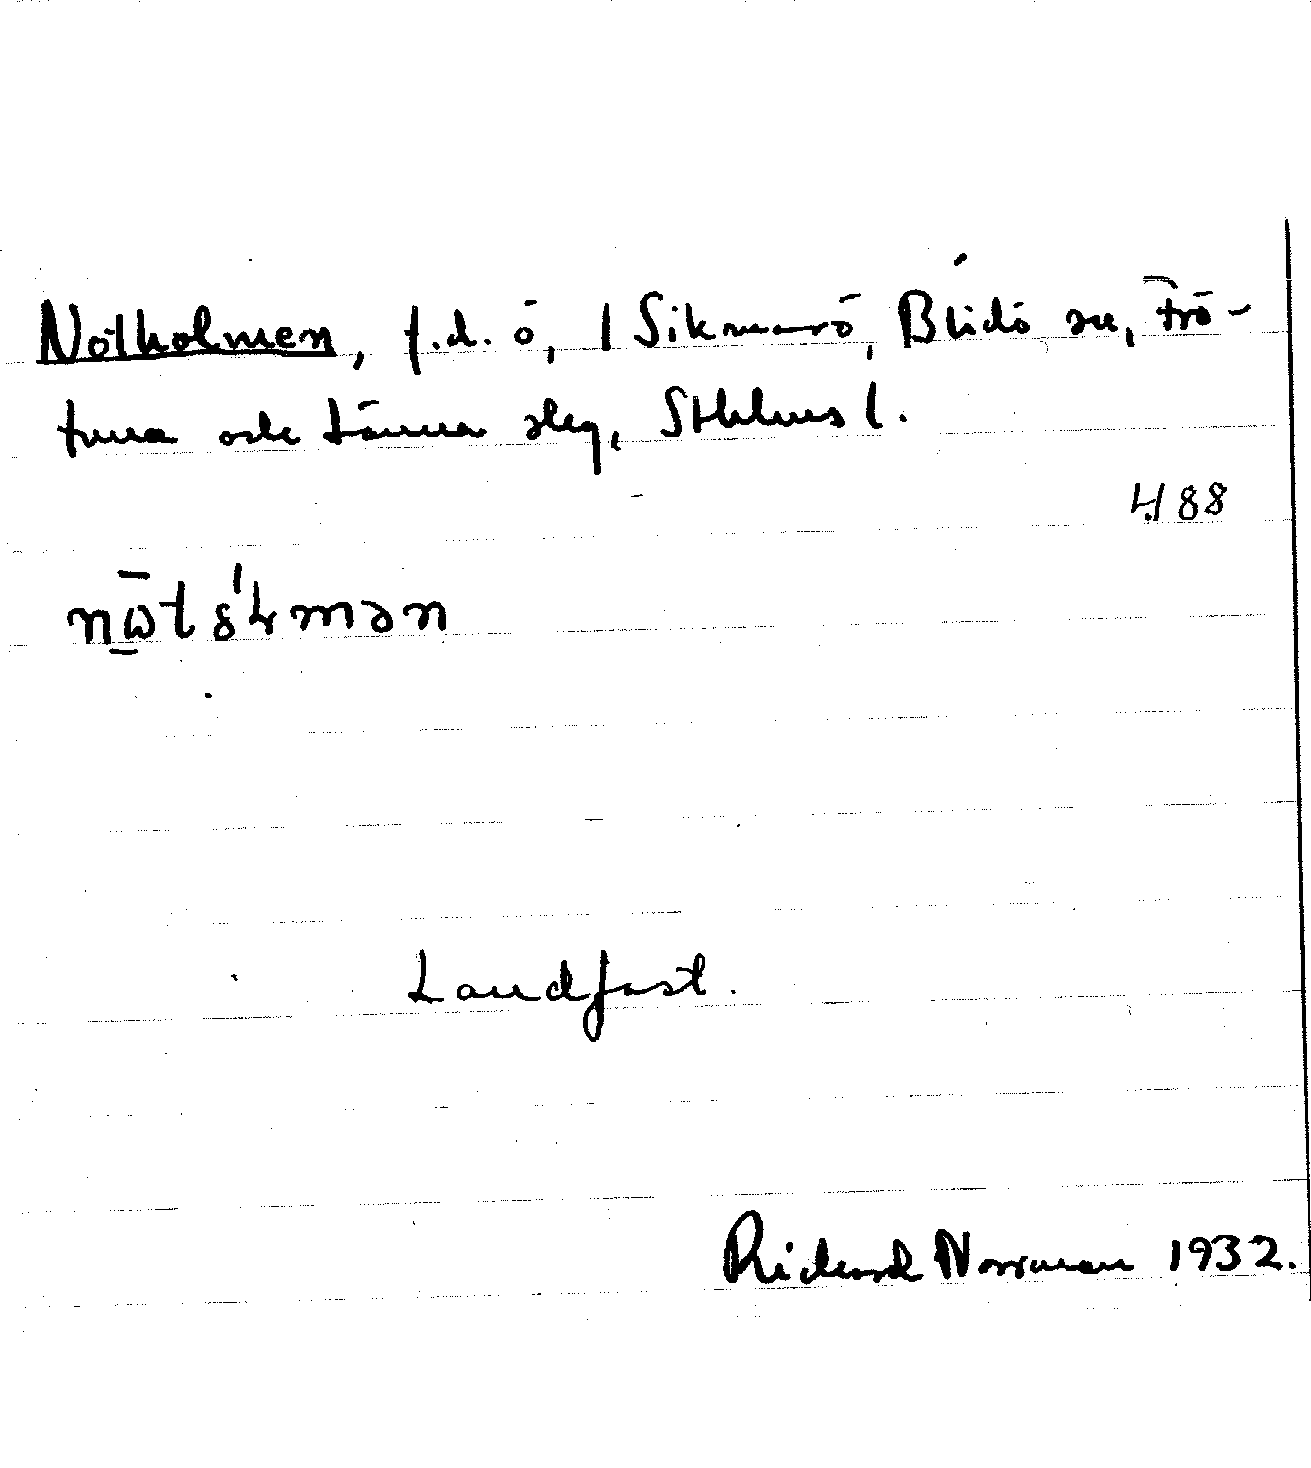 Nötholmen, f.d. ö, / Sikmarö, Blidö sn, Frö-
tuna och Länna slg, Sthlms l.
4,188
nω̄tsʹɫmən
Landfast.
Rickard Norrman 1932.